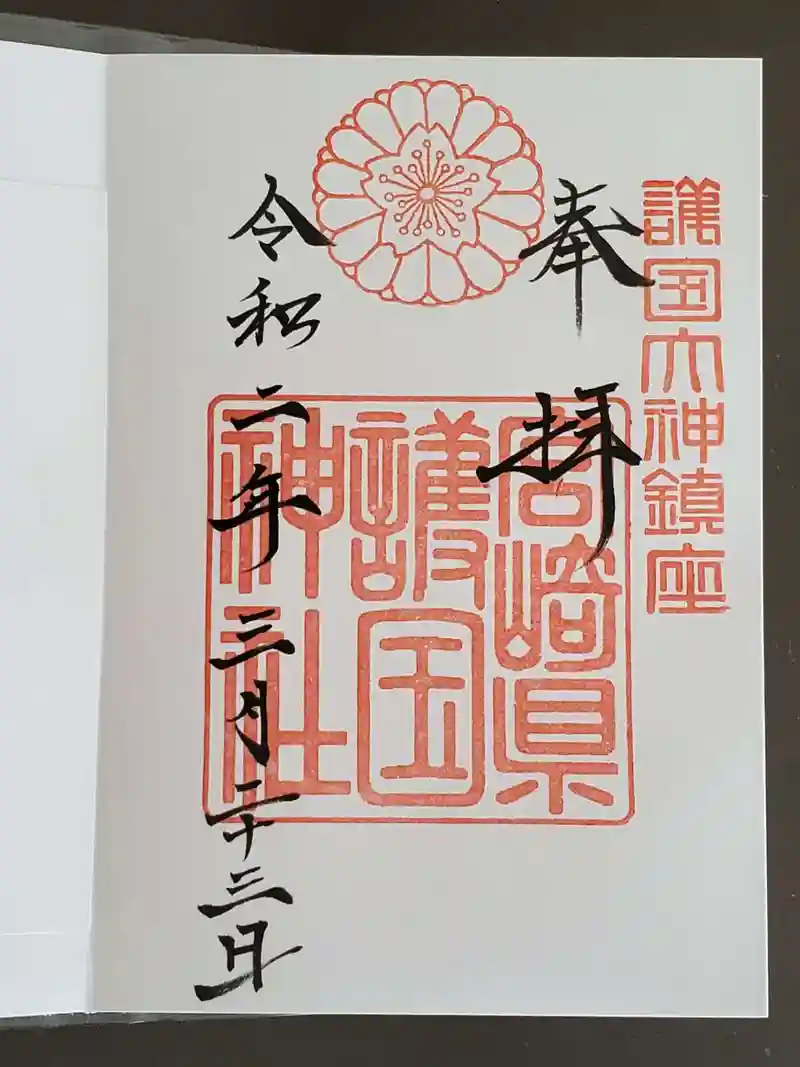 護国大神鎮座
奉拝
宮崎県
護国
神社
令和二年三月二十三日